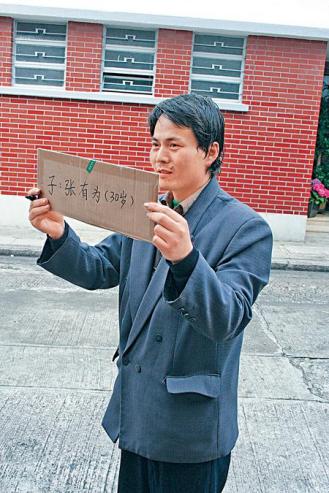 子:张有为(30岁)